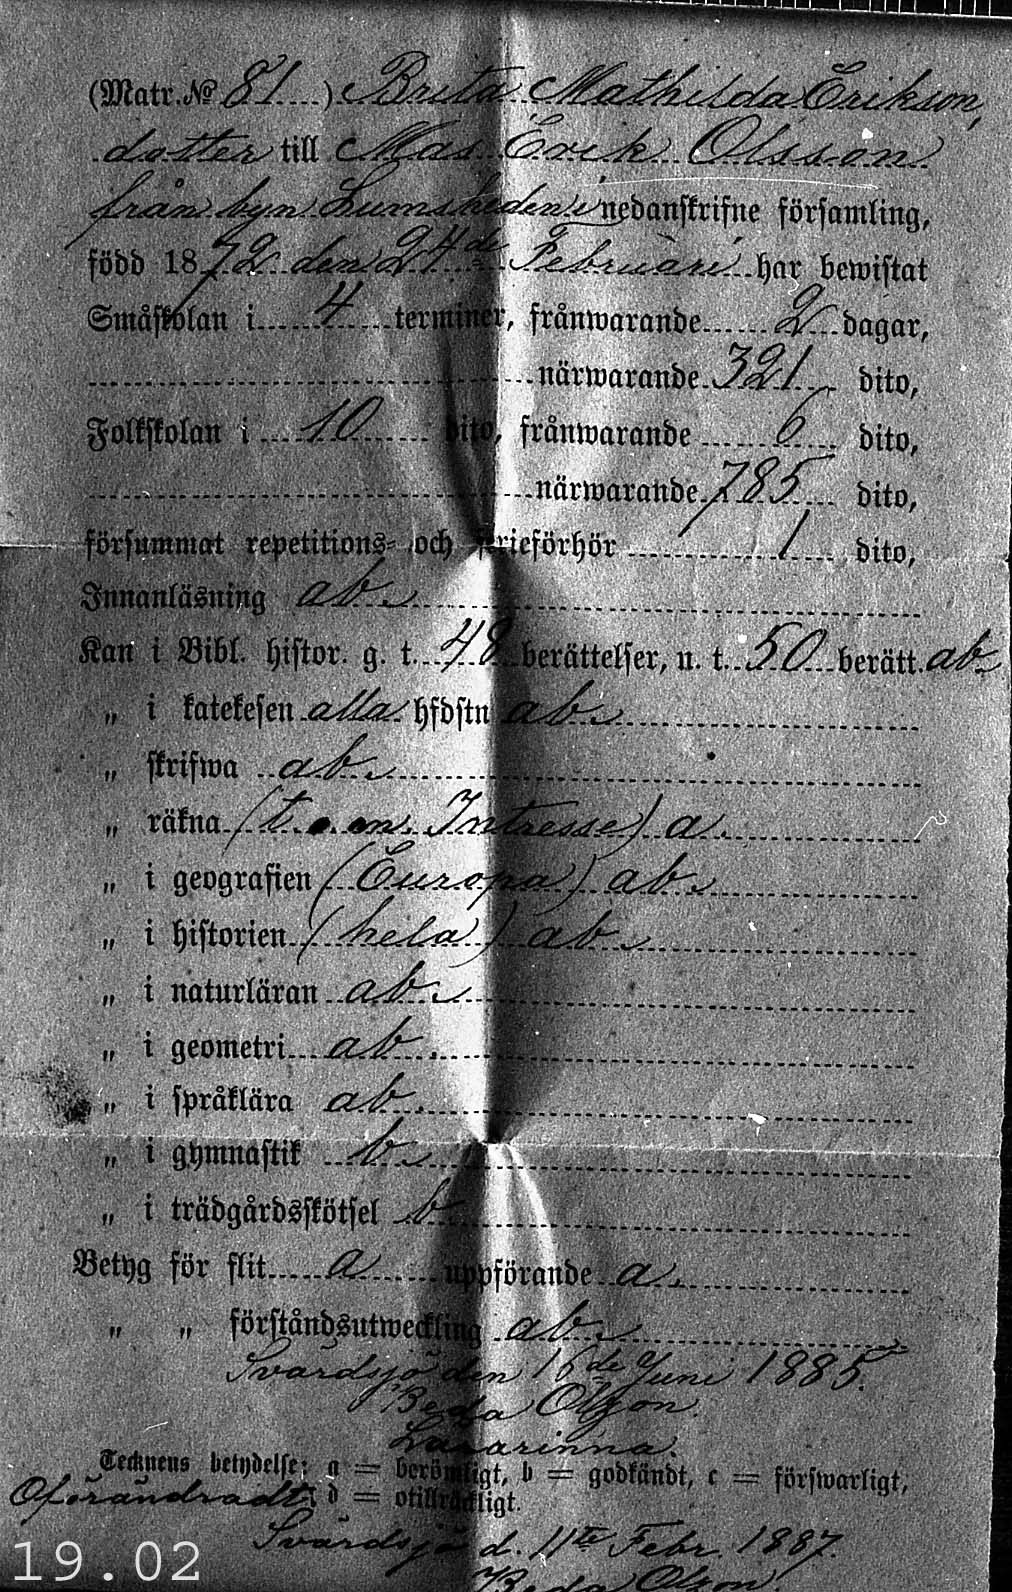 (Matr. № 81 ) Brita Mathilda Erikson,
dotter till Mas Erik Olsson
från byn Lumsheden i nedanskrifne församling,
född 1872 den 24de Februari har bewistat
Småskolan i 4 terminer, frånwarande 2 dagar,
närwarande 321 dito,
Folkskolan i 10 dito, frånwarande 6 dito,
närwarande 785 dito,
försummat repetitions- och ferieförhör 1 dito,
Innanläsning ab.
Kan i Bibl. histor. g. t. 48 berättelser, n. t. 50 berätt. ab.
„ i katekesen alla hfdstn ab.
„ skrifwa ab.
„ räkna (t. o. m. Intresse) a.
„ i geografien (Europa) ab.
„ i historien (hela) ab.
„ i naturläran ab.
„ i geometri ab.
„ i språklära ab.
„ i gymnastik b.
„ i trädgårdsskötsel b
Betyg för flit a uppförande a.
„ „ förståndsutweckling ab.
Svärdsjö den 16de Juni 1885.
Beda Olzon.
Lärarinna.
Tecknens betydelse: a = berömligt, b = godkändt, c = förswarligt,
Oförändradt. d = otillräckligt.
Svärdsjö d. 11te Febr. 1887.
Beda Olzon.
19.02